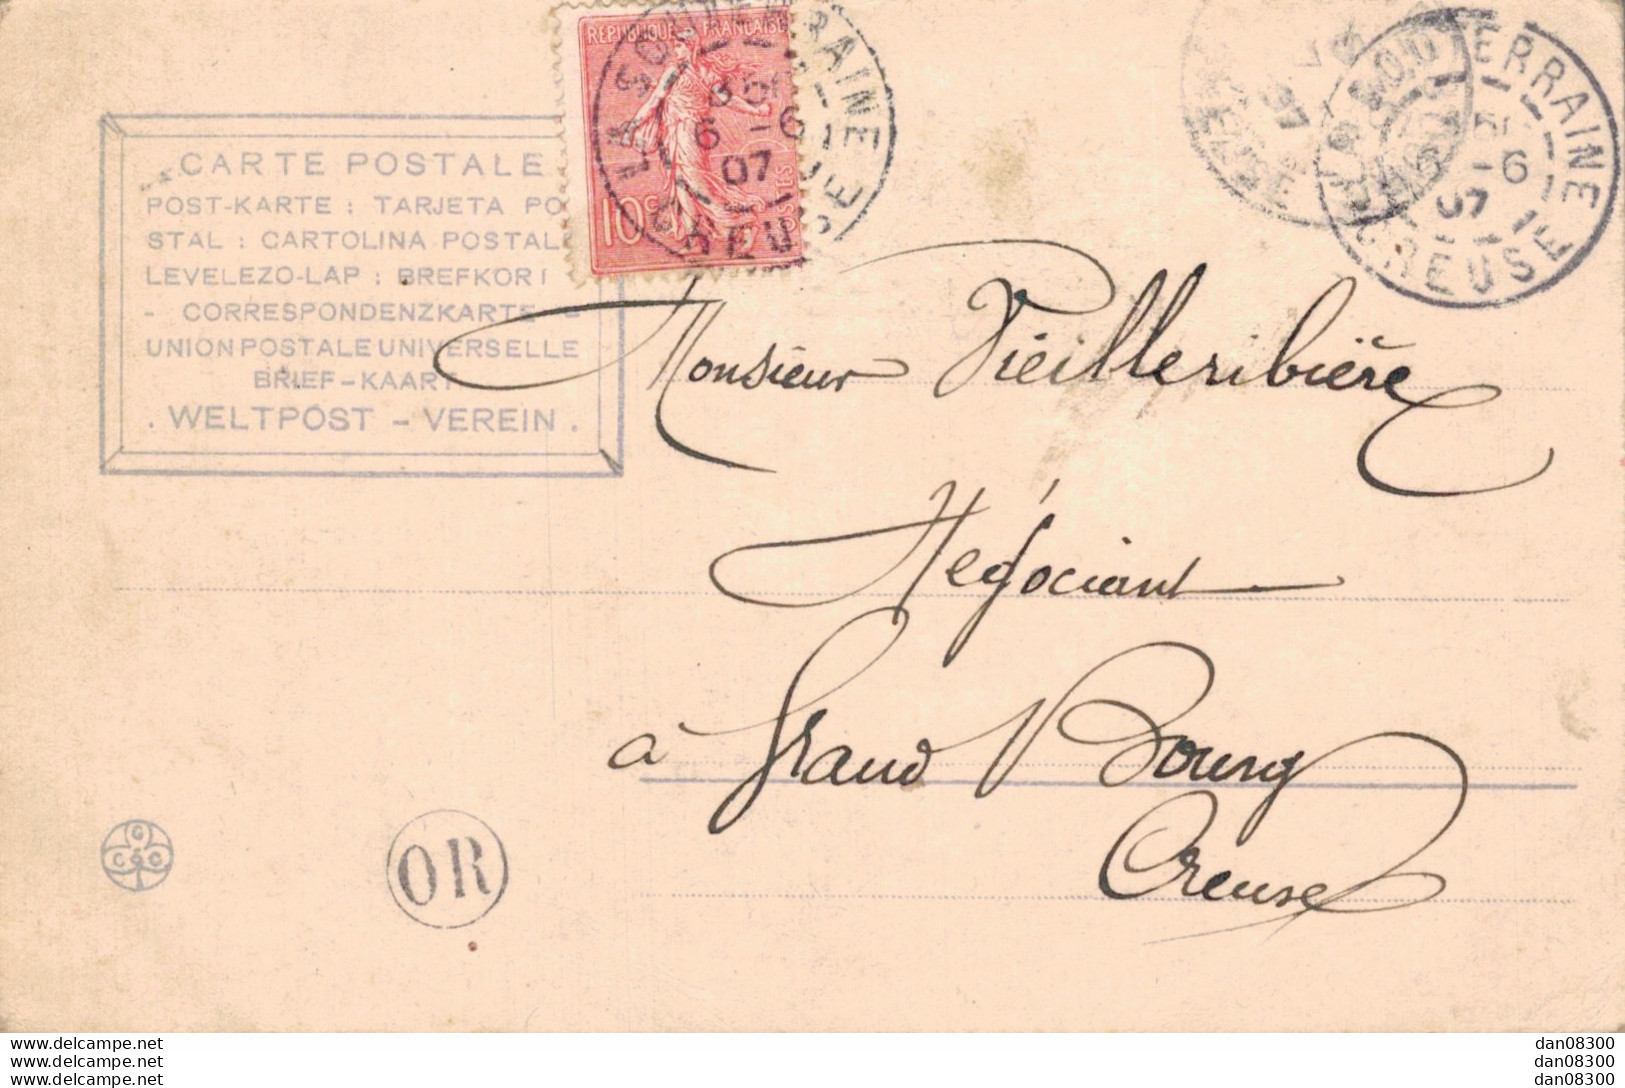 RÉPUBLIQUE FRANÇAISE
10c
LA SOUTERRAINE
6 -6
07
CREUSE
LA SOUTERRAINE
6 -6
07
CREUSE
CARTE POSTALE
POST-KARTE : TARJETA PO
STAL : CARTOLINA POSTAL
LEVELEZO-LAP : BREFKORT
- CORRESPONDENZKARTE -
UNION POSTALE UNIVERSELLE
BRIEF-KAART
. WELTPOST - VEREIN .
Monsieur Vieilleribière
Négociant
à Grand Bourg
Creuse
OR
www.delcampe.net
www.delcampe.net
www.delcampe.net
dan08300
dan08300
dan08300